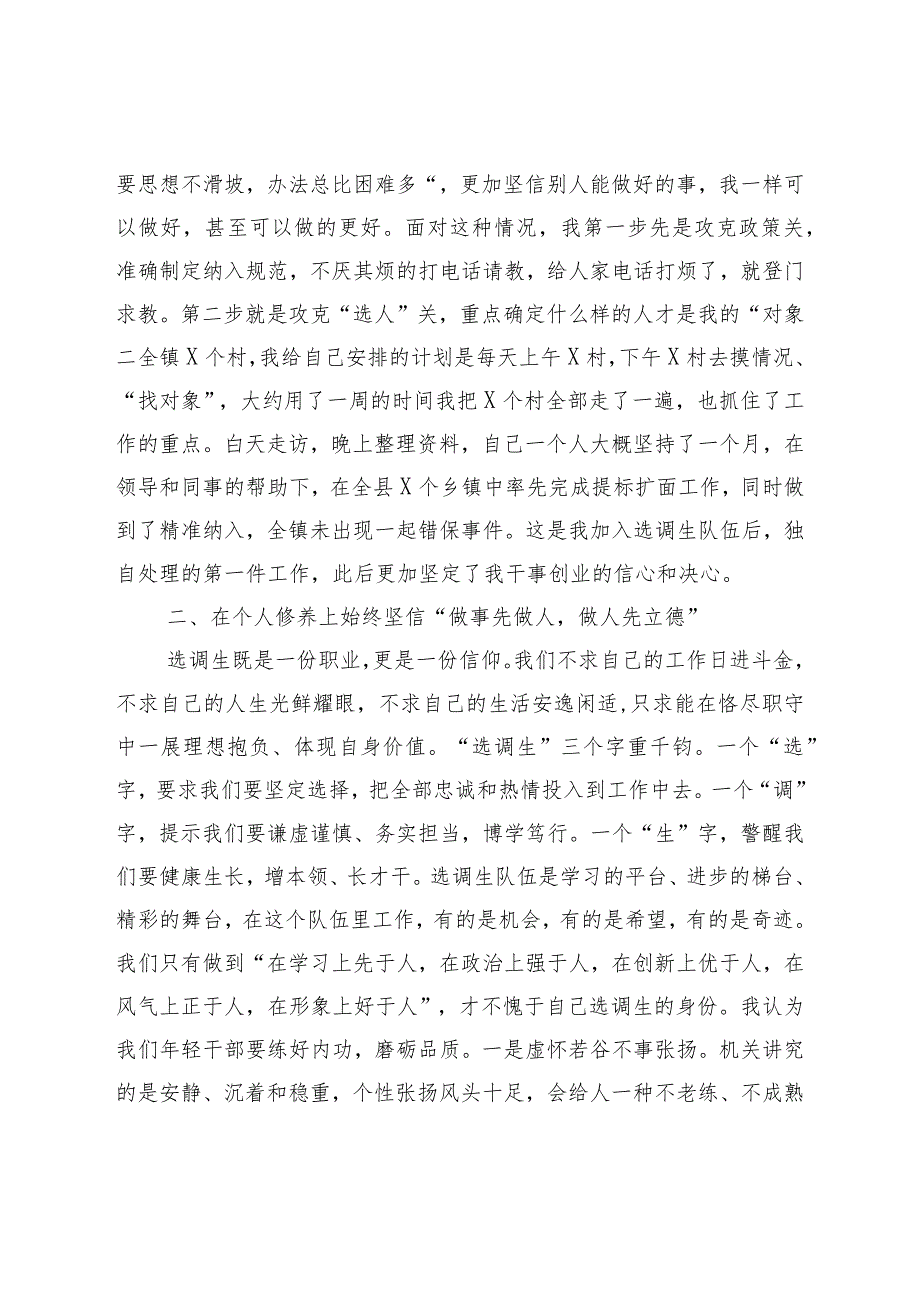 要思想不滑坡，办法总比困难多“，更加坚信别人能做好的事，我一样可
以做好，甚至可以做的更好。面对这种情况，我第一步先是攻克政策关，
准确制定纳入规范，不厌其烦的打电话请教，给人家电话打烦了，就登门
求教。第二步就是攻克“选人”关，重点确定什么样的人才是我的“对象
二全镇X个村,我给自己安排的计划是每天上午X村,下午X村去摸情况、
“找对象”，大约用了一周的时间我把X个村全部走了一遍，也抓住了工
作的重点。白天走访，晚上整理资料，自己一个人大概坚持了一个月，在
领导和同事的帮助下，在全县X个乡镇中率先完成提标扩面工作，同时做
到了精准纳入，全镇未出现一起错保事件。这是我加入选调生队伍后，独
自处理的第一件工作，此后更加坚定了我干事创业的信心和决心。
二、在个人修养上始终坚信“做事先做人，做人先立德”
选调生既是一份职业,更是一份信仰。我们不求自己的工作日进斗金，
不求自己的人生光鲜耀眼，不求自己的生活安逸闲适,只求能在恪尽职守
中一展理想抱负、体现自身价值。“选调生”三个字重千钧。一个“选”
字，要求我们要坚定选择，把全部忠诚和热情投入到工作中去。一个“调”
字，提示我们要谦虚谨慎、务实担当，博学笃行。一个“生”字，警醒我
们要健康生长，增本领、长才干。选调生队伍是学习的平台、进步的梯台、
精彩的舞台，在这个队伍里工作，有的是机会，有的是希望，有的是奇迹。
我们只有做到“在学习上先于人，在政治上强于人，在创新上优于人，在
风气上正于人，在形象上好于人”，才不愧于自己选调生的身份。我认为
我们年轻干部要练好内功，磨砺品质。一是虚怀若谷不事张扬。机关讲究
的是安静、沉着和稳重，个性张扬风头十足，会给人一种不老练、不成熟